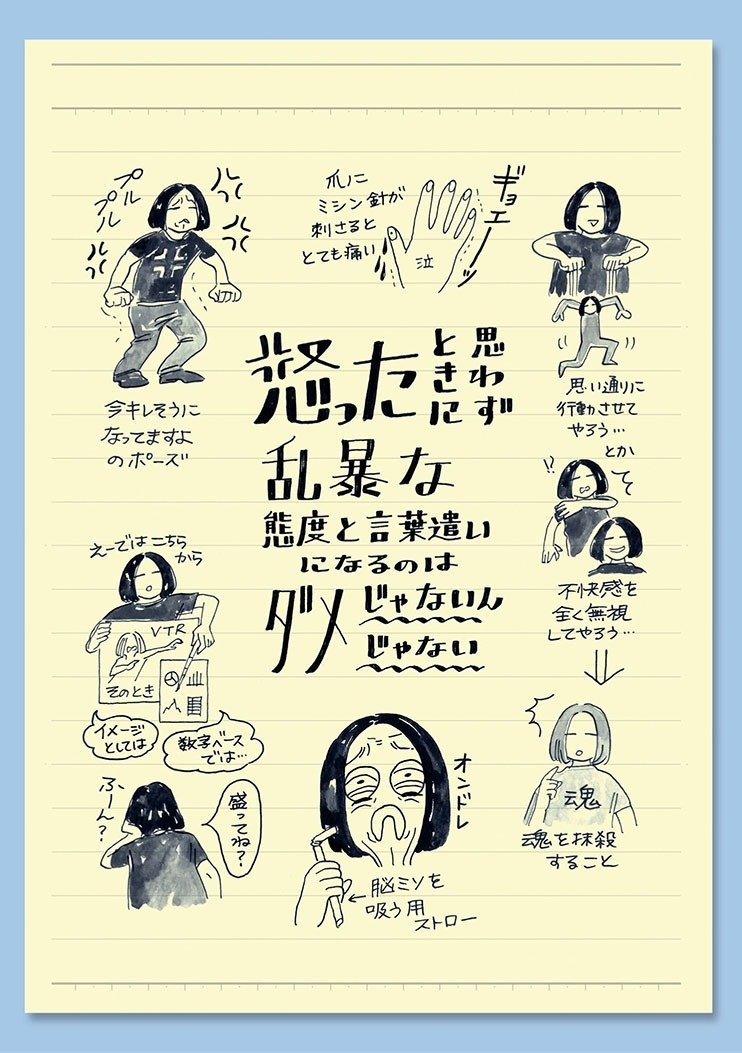 プル
プル
今キレそうに
なってますよ
のポーズ
爪に
ミシン針が
刺さると
とても痛い
ギョエーッ
泣
思い通りに
行動させて
やろう…
とか
!!
不快感を
全く無視
してやろう…
魂
魂を抹殺
すること
思わず
ときに
怒った
乱暴な
態度と言葉遣い
になるのは
ダメじゃないん
じゃない
えーではこちら
から
VTR
そのとき
イメージ
としては
数字ベース
では…
ふーん?
盛ってね?
オンドレ
脳ミソを
吸う用
ストロー